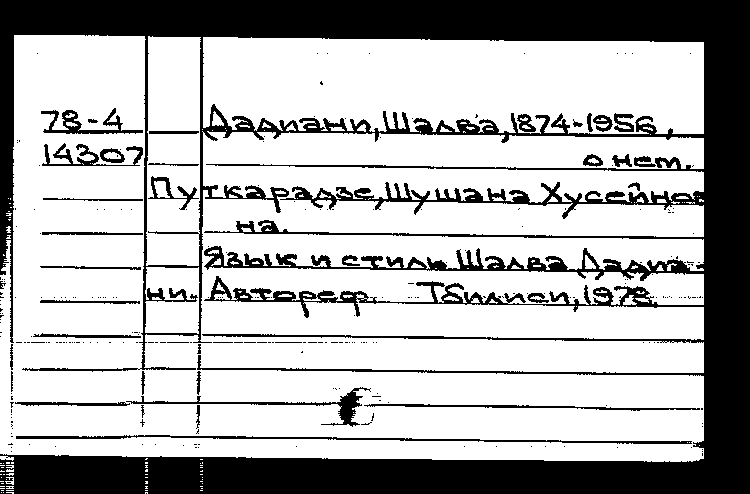 78-4 Дадиани, Шалва, 1874-1956,
14307 о нем.
Путкарадзе, Шушана Хусейнов
на.
Язык и стиль Шалва Дадиа-
ни. Автореф. Тбилиси, 1978.